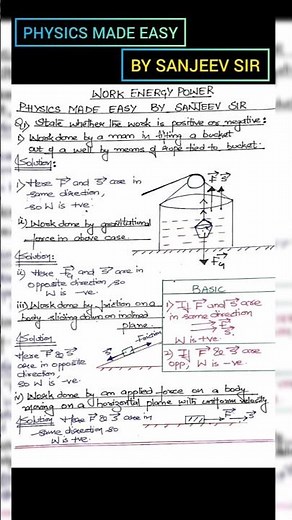 PHYSICS MADE EASY
BY SANJEEV SIR
WORK ENERGY POWER
PHYSICS MADE EASY BY SANJEEV SIR
Q1) State whether the work is positive or negative:
i) Work done by a man in lifting a bucket
out of a well by means of rope tied to bucket.
Solution:
i) Here F and S are in
same direction,
so W is +ve.
ii) Work done by gravitational
force in above case.
Solution:
ii) Here Fg and S are in
opposite direction, so
W is -ve.
F S
Fg
iii) Work done by friction on a
body sliding down an inclined
plane.
Solution
Here F & S are
in opposite
direction,
so W is -ve.
Friction
S
BASIC
1) If F and S are
in same direction
F
S
W is +ve
2) If F & S are
opp, W is -ve.
iv) Work done by an applied force on a body
moving on a horizontal plane with uniform velocity
Solution Here F & S are in
same direction so
W is +ve.
F S